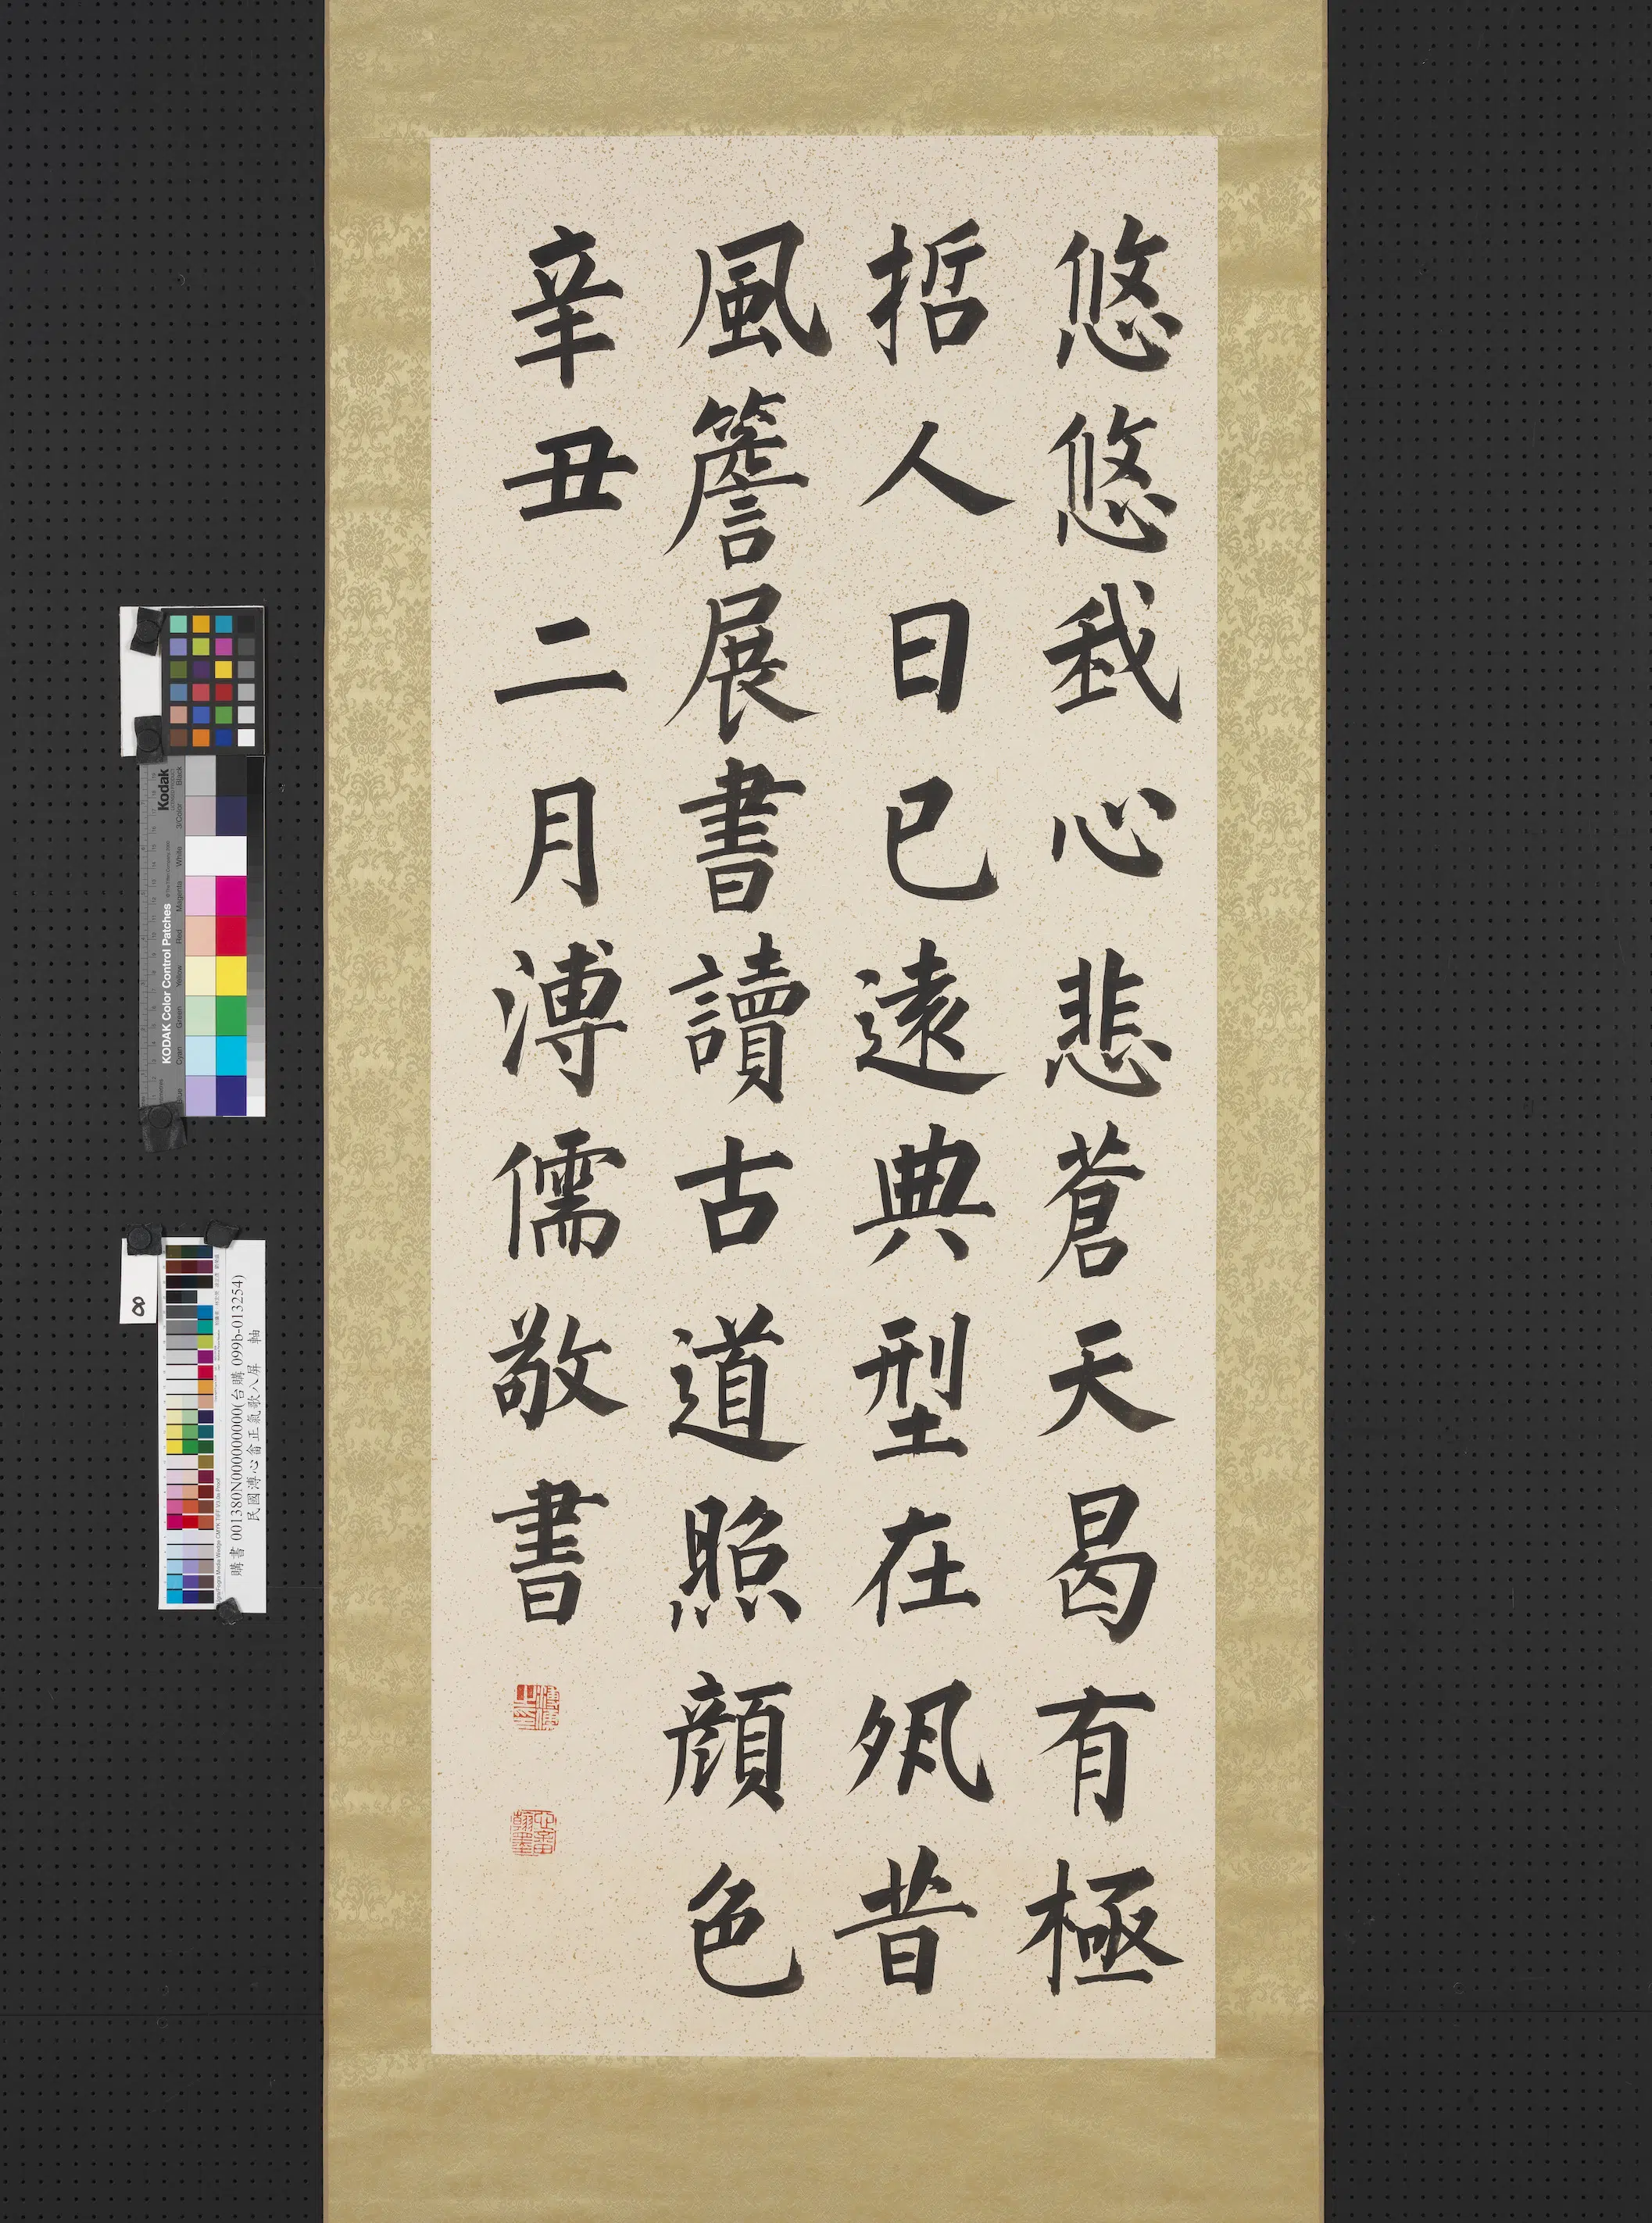 悠悠我心悲蒼天曷有極
哲人日已遠典型在夙昔
風簷展書讀古道照顏色
辛丑二月溥儒敬書
Kodak
KODAK Color Control Patches
Black
3/Color
White
Magenta
Red
Yellow
Green
Cyan
Blue
8
購書 001380N000000000(台購 099b-013254)
民國溥心畬正氣歌八屏 軸